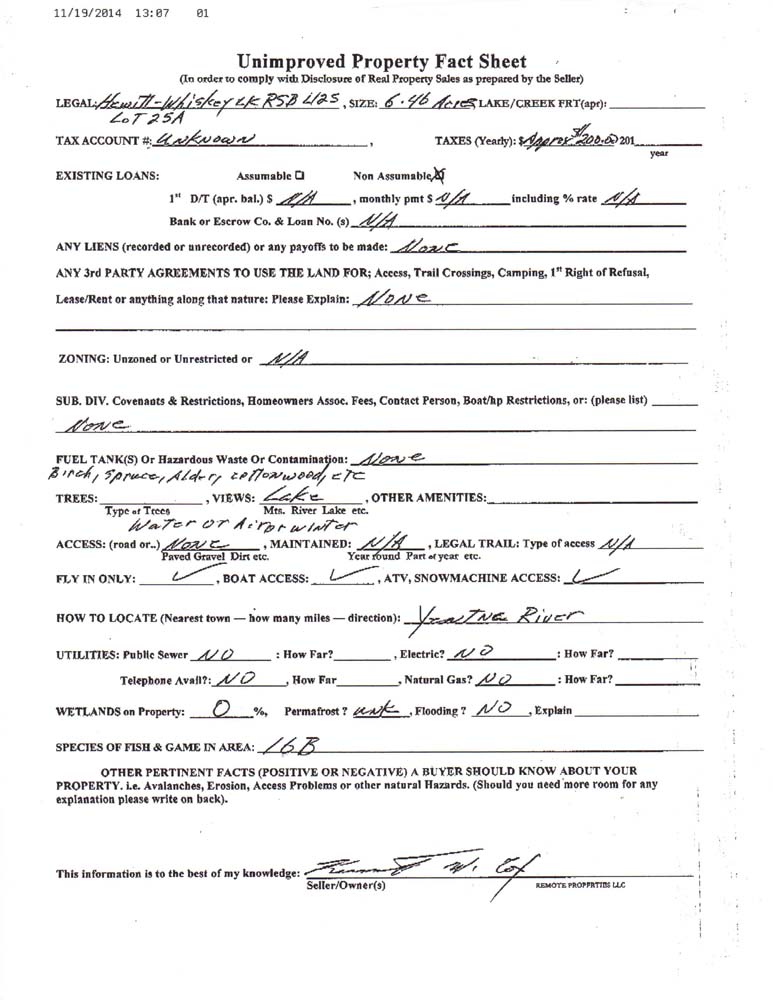 11/19/2014 13:07 01
Unimproved Property Fact Sheet
(In order to comply with Disclosure of Real Property Sales as prepared by the Seller)
LEGAL: Hewitt-Whiskey LK RSB L/2S, SIZE: 6.46 Acres LAKE/CREEK FRT(apr):
LOT 25A
TAX ACCOUNT #: UNKNOWN, TAXES (Yearly): $ Approx $200.00 201
year
EXISTING LOANS: Assumable ☐ Non Assumable ☒
1st D/T (apr. bal.) $ N/A, monthly pmt $ N/A including % rate N/A
Bank or Escrow Co. & Loan No. (s) N/A
ANY LIENS (recorded or unrecorded) or any payoffs to be made: None
ANY 3rd PARTY AGREEMENTS TO USE THE LAND FOR; Access, Trail Crossings, Camping, 1st Right of Refusal,
Lease/Rent or anything along that nature: Please Explain: NONE
ZONING: Unzoned or Unrestricted or N/A
SUB. DIV. Covenants & Restrictions, Homeowners Assoc. Fees, Contact Person, Boat/hp Restrictions, or: (please list)
None
FUEL TANK(S) Or Hazardous Waste Or Contamination: None
Birch, Spruce, Alder, cottonwood, ETC
TREES: , VIEWS: Lake, OTHER AMENITIES:
Type of Trees Mts. River Lake etc.
Water or Air or winter
ACCESS: (road or..) None, MAINTAINED: N/A, LEGAL TRAIL: Type of access N/A
Paved Gravel Dirt etc. Year round Part of year etc.
FLY IN ONLY: ✓, BOAT ACCESS: ✓, ATV, SNOWMACHINE ACCESS: ✓
HOW TO LOCATE (Nearest town — how many miles — direction): Yentna River
UTILITIES: Public Sewer NO : How Far? , Electric? NO : How Far?
Telephone Avail?: NO, How Far , Natural Gas? NO : How Far?
WETLANDS on Property: 0 %, Permafrost? unk, Flooding? NO, Explain
SPECIES OF FISH & GAME IN AREA: 16B
OTHER PERTINENT FACTS (POSITIVE OR NEGATIVE) A BUYER SHOULD KNOW ABOUT YOUR
PROPERTY. i.e. Avalanches, Erosion, Access Problems or other natural Hazards. (Should you need more room for any
explanation please write on back).
This information is to the best of my knowledge: W. Cox
Seller/Owner(s) REMOTE PROPERTIES LLC